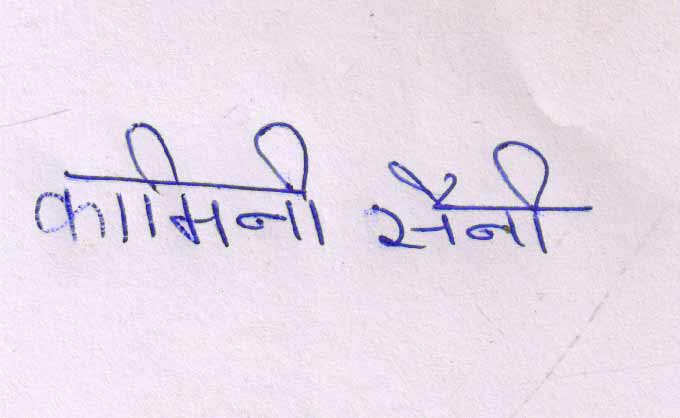 कामिनी सैनी